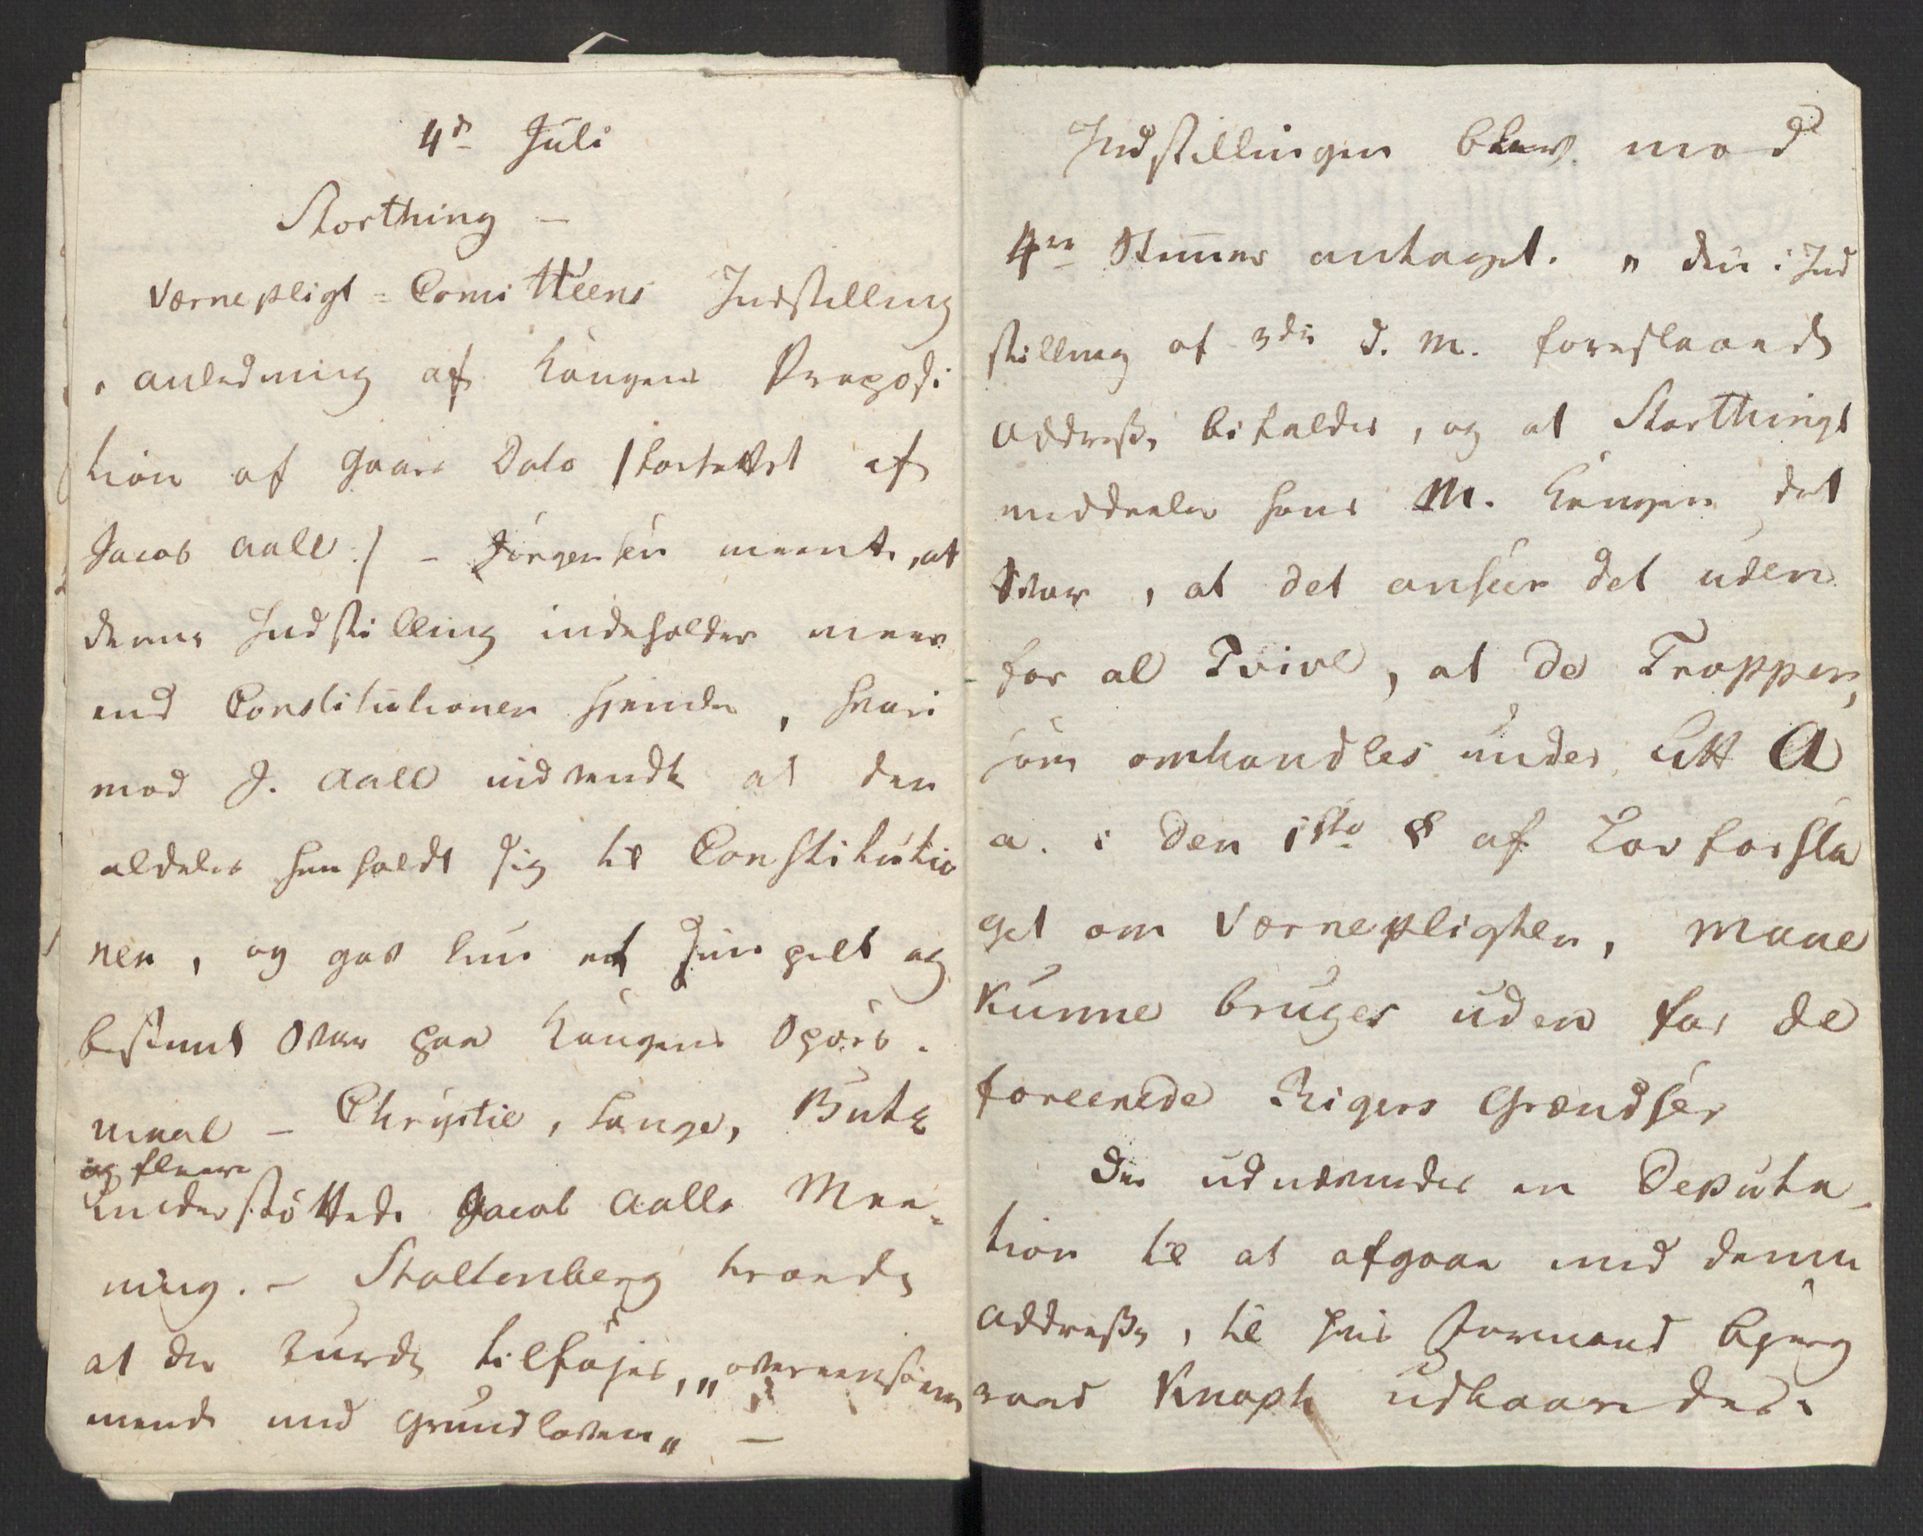 4de Juli
Storthing –
Værnepligt-Comitteens Indstilling
i anledning af Kongens Proposi
tion af Gaars Dato /: forfattet af
Jacob Aall :/ – Jörgensen meente, at
denne Indstilling indeholder meer
end Constitutionen hjemler, hvori
mod J. Aall indvendte at den
aldeles henholdt sig til Constitutio
nen, og gav kun et simpelt og
bestemt Svar paa Kongens Spörs-
maal – Christie, Lange, Butz
og fleere
understöttede Jacob Aalls Mee-
ning. – Stoltenberg troede
at der burde tilföjes, „overeensstem
mende med Grundloven„ –
Indstillingen blev mod
4re Stemmer antaget. „ den i Ind
stilling af 3die d. M. foreslaaede
Addresse bifaldes, og at Storthinget
meddeeler Hans M. Kongen det
Svar, at det anseer det uden
for al Tvivl, at de Tropper,
som omhandles under Litt A
a. i den 1ste § af Lovforsla
get om Værnepligten, maae
kunne bruges uden for de
foreenede Rigers Grændser
Der udnævnedes en Deputa-
tion til at afgaae med denne
Addresse, til hvis Formand Bjerg
raad Knoph udkaaredes.